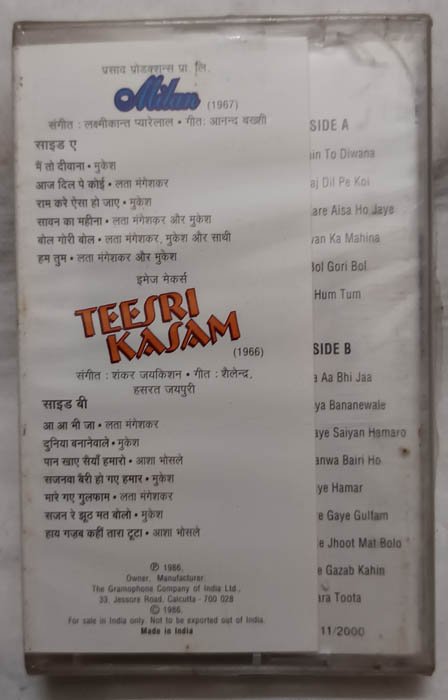 प्रसाद प्रोडक्शन्स प्रा. लि.
Milan (1967)
संगीत : लक्ष्मीकान्त प्यारेलाल • गीत: आनन्द बख्शी
साइड ए
मैं तो दीवाना • मुकेश
आज दिल पे कोई • लता मंगेशकर
राम करे ऐसा हो जाए • मुकेश
सावन का महीना • लता मंगेशकर और मुकेश
बोल गोरी बोल • लता मंगेशकर, मुकेश और साथी
हम तुम • लता मंगेशकर और मुकेश
इमेज मेकर्स
TEESRI
KASAM
(1966)
संगीत : शंकर जयकिशन • गीत : शैलेन्द्र,
हसरत जयपुरी
साइड बी
आ आ भी जा • लता मंगेशकर
दुनिया बनानेवाले • मुकेश
पान खाए सैयाँ हमारो • आशा भोसले
सजनवा बैरी हो गए हमार • मुकेश
मारे गए गुलफाम • लता मंगेशकर
सजन रे झूठ मत बोलो • मुकेश
हाय गज़ब कहीं तारा टूटा • आशा भोसले
℗ 1986,
Owner, Manufacturer.
The Gramophone Company of India Ltd.,
33, Jessore Road, Calcutta - 700 028
© 1986.
For sale in India only. Not to be exported out of India.
Made in India
SIDE A
in To Diwana
aj Dil Pe Koi
are Aisa Ho Jaye
van Ka Mahina
Bol Gori Bol
Hum Tum
SIDE B
a Aa Bhi Jaa
ya Bananewale
aye Saiyan Hamaro
anwa Bairi Ho
ye Hamar
e Gaye Gulfam
e Jhoot Mat Bolo
e Gazab Kahin
ara Toota
11/2000